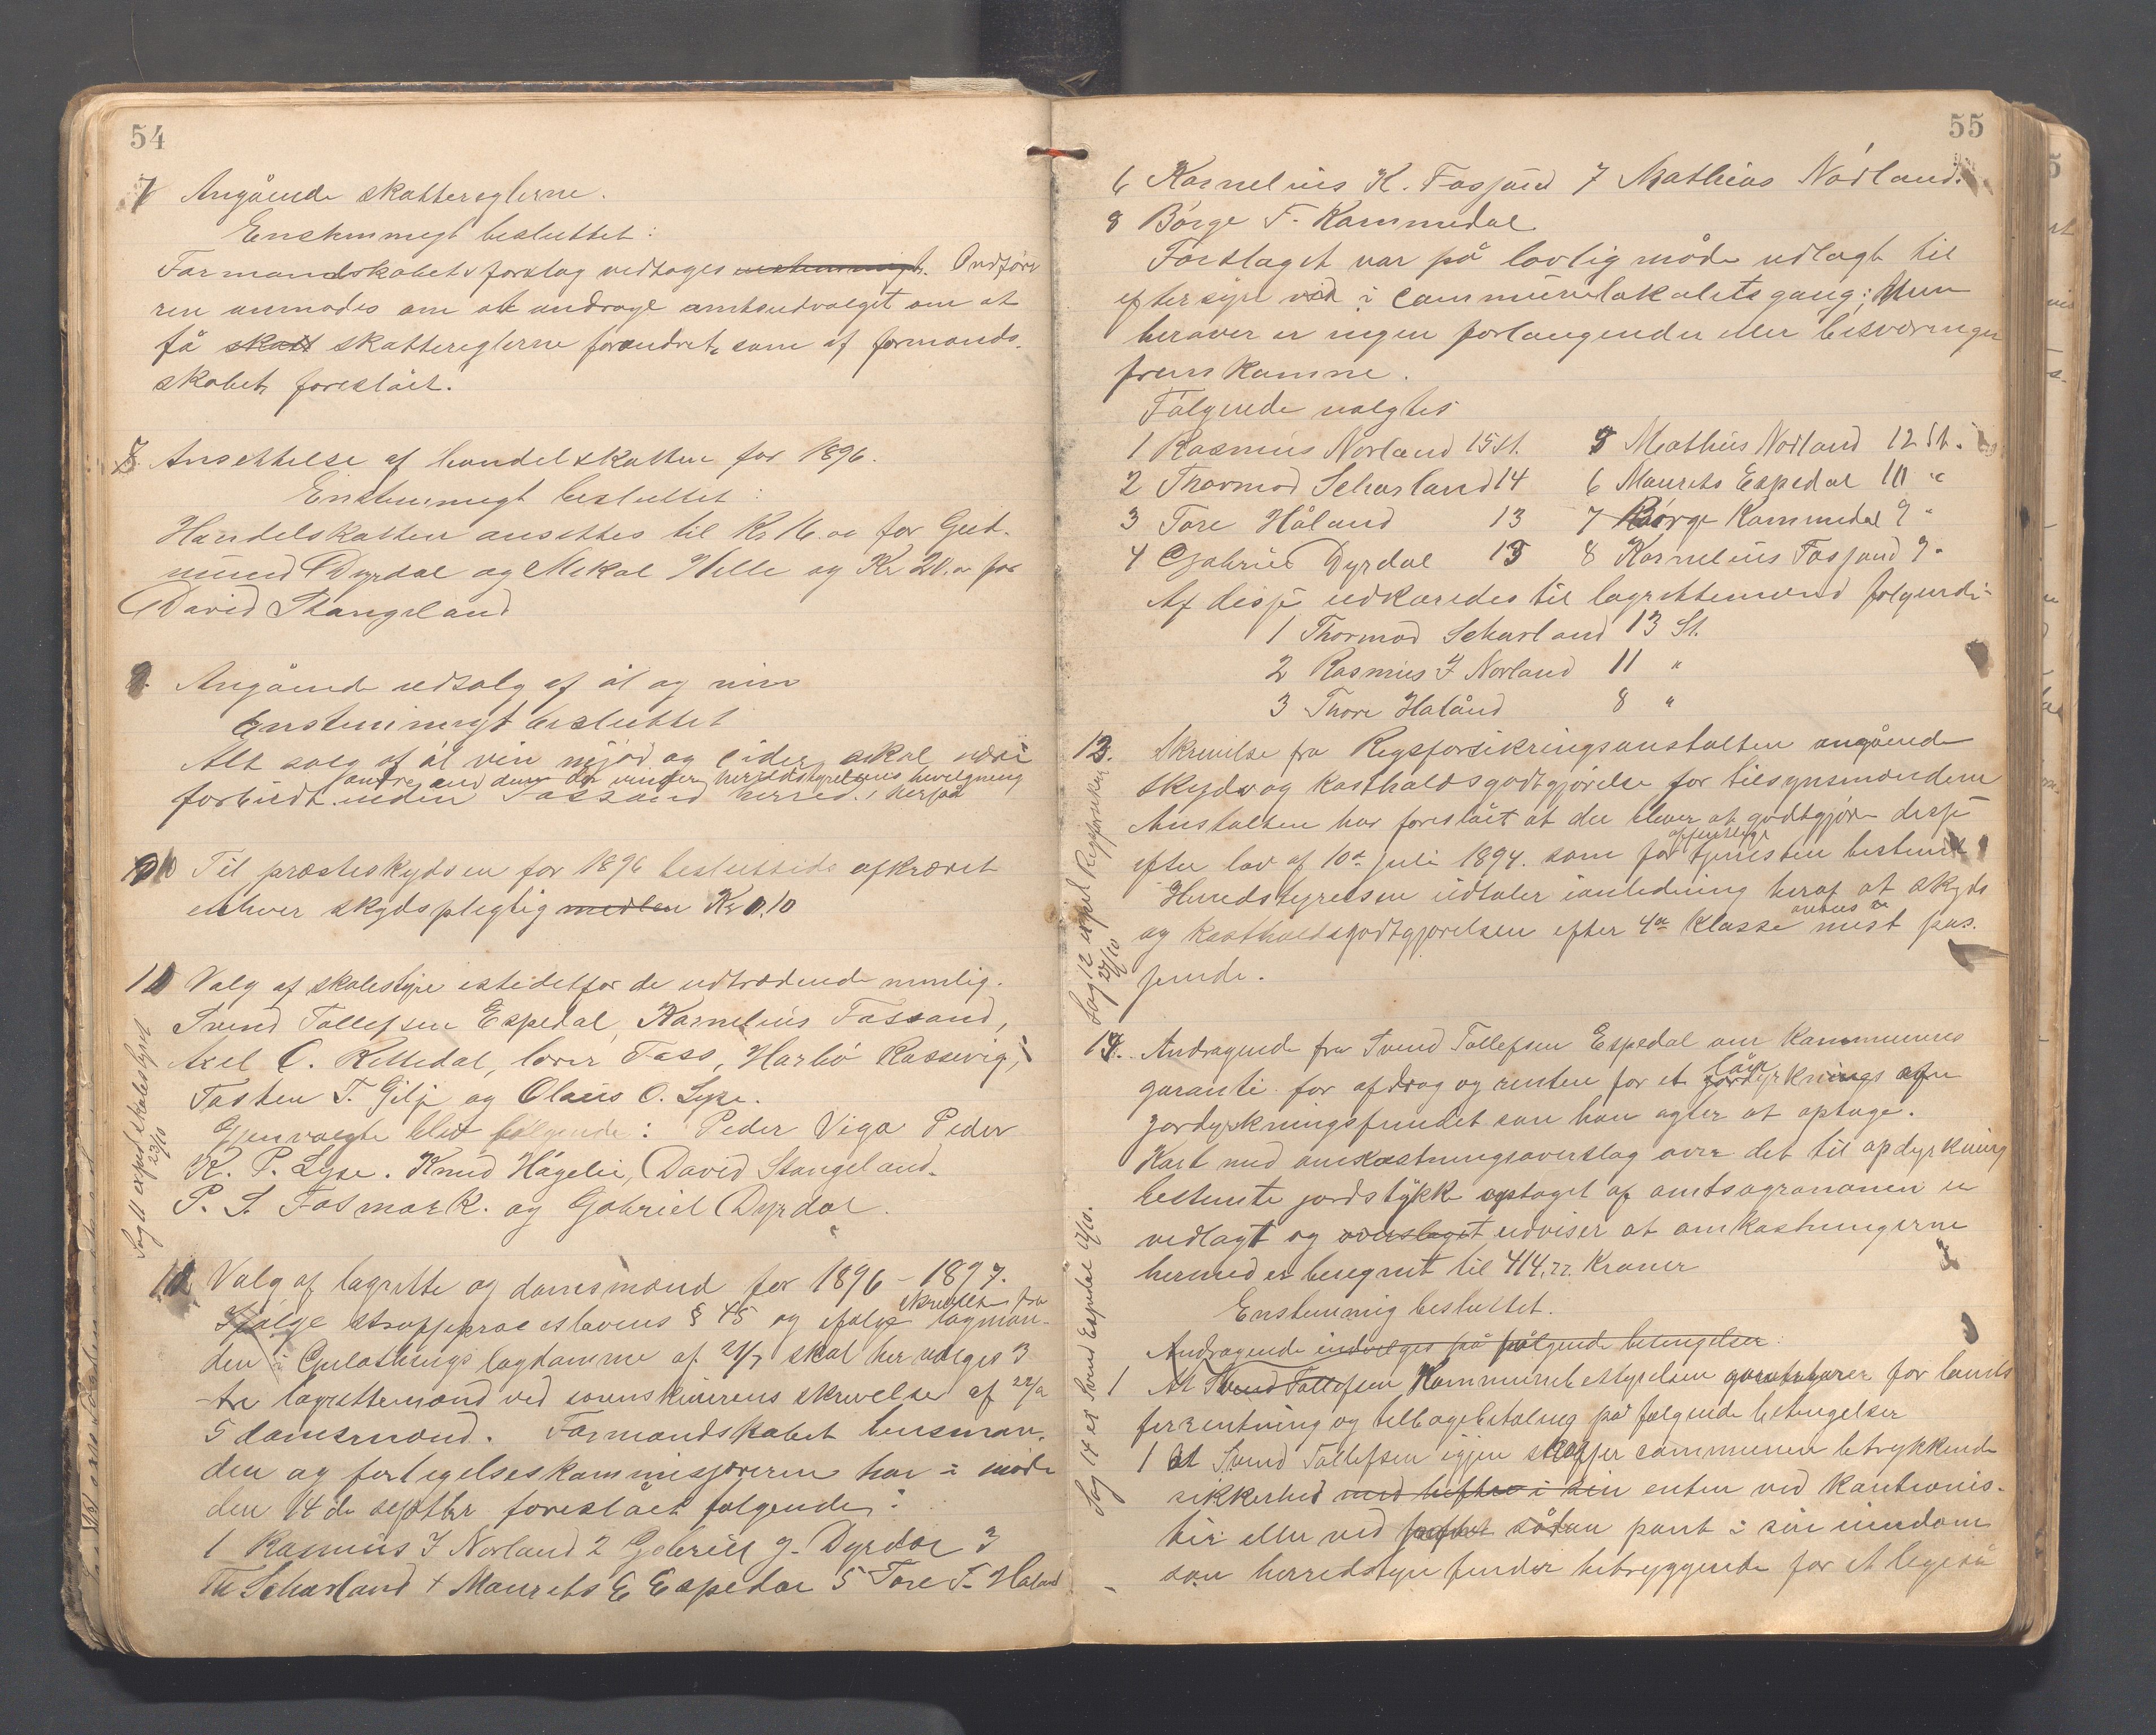 54
7 Angående skattereglerne.
Enstemmigt besluttet:
Formandskabets forslag vedtages enstemmigt. Ordføre
ren anmodes om at andrage amtsudvalget om at
få skatt skattereglerne forandret som af formands-
skabet foreslået.
8 Ansettelse af handelskatten for 1896.
Enstemmigt besluttet:
Handelskatten ansettes til Kr 16.00 for Gud-
mund Dyrdal og Mikal Helle og Kr 20.00 for
David Stangeland
9. Angående udsalg af øl og vin
Enstemmigt besluttet
Alt salg af øl vin mjød og sider skal være
andre end dem der vinder herredstyrelsens bevilgning
forbudt inden Fossand herred. hertil
10 Til præsteskydsen for 1896 besluttedes afkrævet
enhver skydspligtig medlem Kr 0,10
11 Valg af skolestyre istedetfor de udtrædende nemlig.
Svend Tollefsen Espedal, Kornelius Fossand,
Axel C. Rettedal, lærer Foss, Harbo Rossevig,
Tosten T. Gilje og Olaus O. Lyse.
Gjenvalgte blev følgende: Peder Viga Peder
K. P. Lyse. Knud Högelie, David Stangeland.
P. S. Fosmark. og Gabriel Dyrdal.
Sag 11 exped skolestyret
23/10
12 Valg af lagrette og domsmænd for 1896-1897.
Ifølge straffeproceslovens § 45 og ifølge skrivelse fra lagman-
den i Gulathings lagdømme af 21/7 skal her vælges 3
tre lagrettemænd ved sorenskriverens skrivelse af 22/2
5 domsmænd. Formandskabet lensman-
den og forligelseskommisjærerne har i møde
den 14 de septbr foreslået følgende:
1 Rasmus J Norland 2 Gabriel J. Dyrdal 3
Th Scharland 4 Maurits E Espedal 5 Tore T. Haland
55
6 Kornelius K. Fosjand 7 Mathias Nórland.
8 Børge F. Kommedal
Forslaget var på lovlig måde udlagt til
eftersyn ved i communelokalets gang; Men
herover er ingen forlangender eller besværinger
fremkomne.
Følgende valgtes
1 Rasmus Norland 15 St. 5 Mathias Norland 12 St.
2 Thormod Scharland 14 6 Maurits Espedal 10 "
3 Tore Håland 13 7 Børge Kommedal 9 "
4 Gabriel Dyrdal 13 8 Kornelius Fosjand 9 "
Af disse udkåredes til lagrettemænd følgende
1 Thormod Scharland 13 St.
2 Rasmus J Norland 11 "
3 Thore Håland 8 "
13. Skrivelse fra Rigsforsikringsanstalten angående
skyds og kostholdsgodtgjørelse for tilsynsmændene
Anstalten har foreslået at der bliver at godtgjøre disse
efter lov af 10de juli 1894. som for offentlige tjenesten bestemt
Herredstyrelsen udtaler ianledning heraf at skyds
og kostholdsgodtgjørelsen efter 4de klasse ansees mest pas-
sende.
Sag 12 exped Rigsforsikr
23/10
14. Andragende fra Svend Tollefsen Espedal om kommunens
garanti for afdrag og renten for et lån jordyrknings afn
jordyrkningsfondet som han agter at optage.
Kart med omkostningsoverslag over det til opdyrkning
bestemte jordstykke optaget af amtsagronomen er
vedlagt og overslaget udviser at omkostningerne
hermed er beregnet til 414,72. kroner
Enstemmig besluttet.
Andragende indvilges på følgende betingelser:
1 At Svend Tollefsen Kommunebestyrelsen garanterer for lånets
forrentning og tilbagebetaling på følgende betingelser
1 At Svend Tollefsen igjen skaffer communen betryggende
sikkerhed med hefter i sin enten ved kautionis-
ter eller ved sådan pant i sin eiendom
som herredstyre finder betryggende for et ligeså
Sag 14 ex Svend Espedal 17/10.